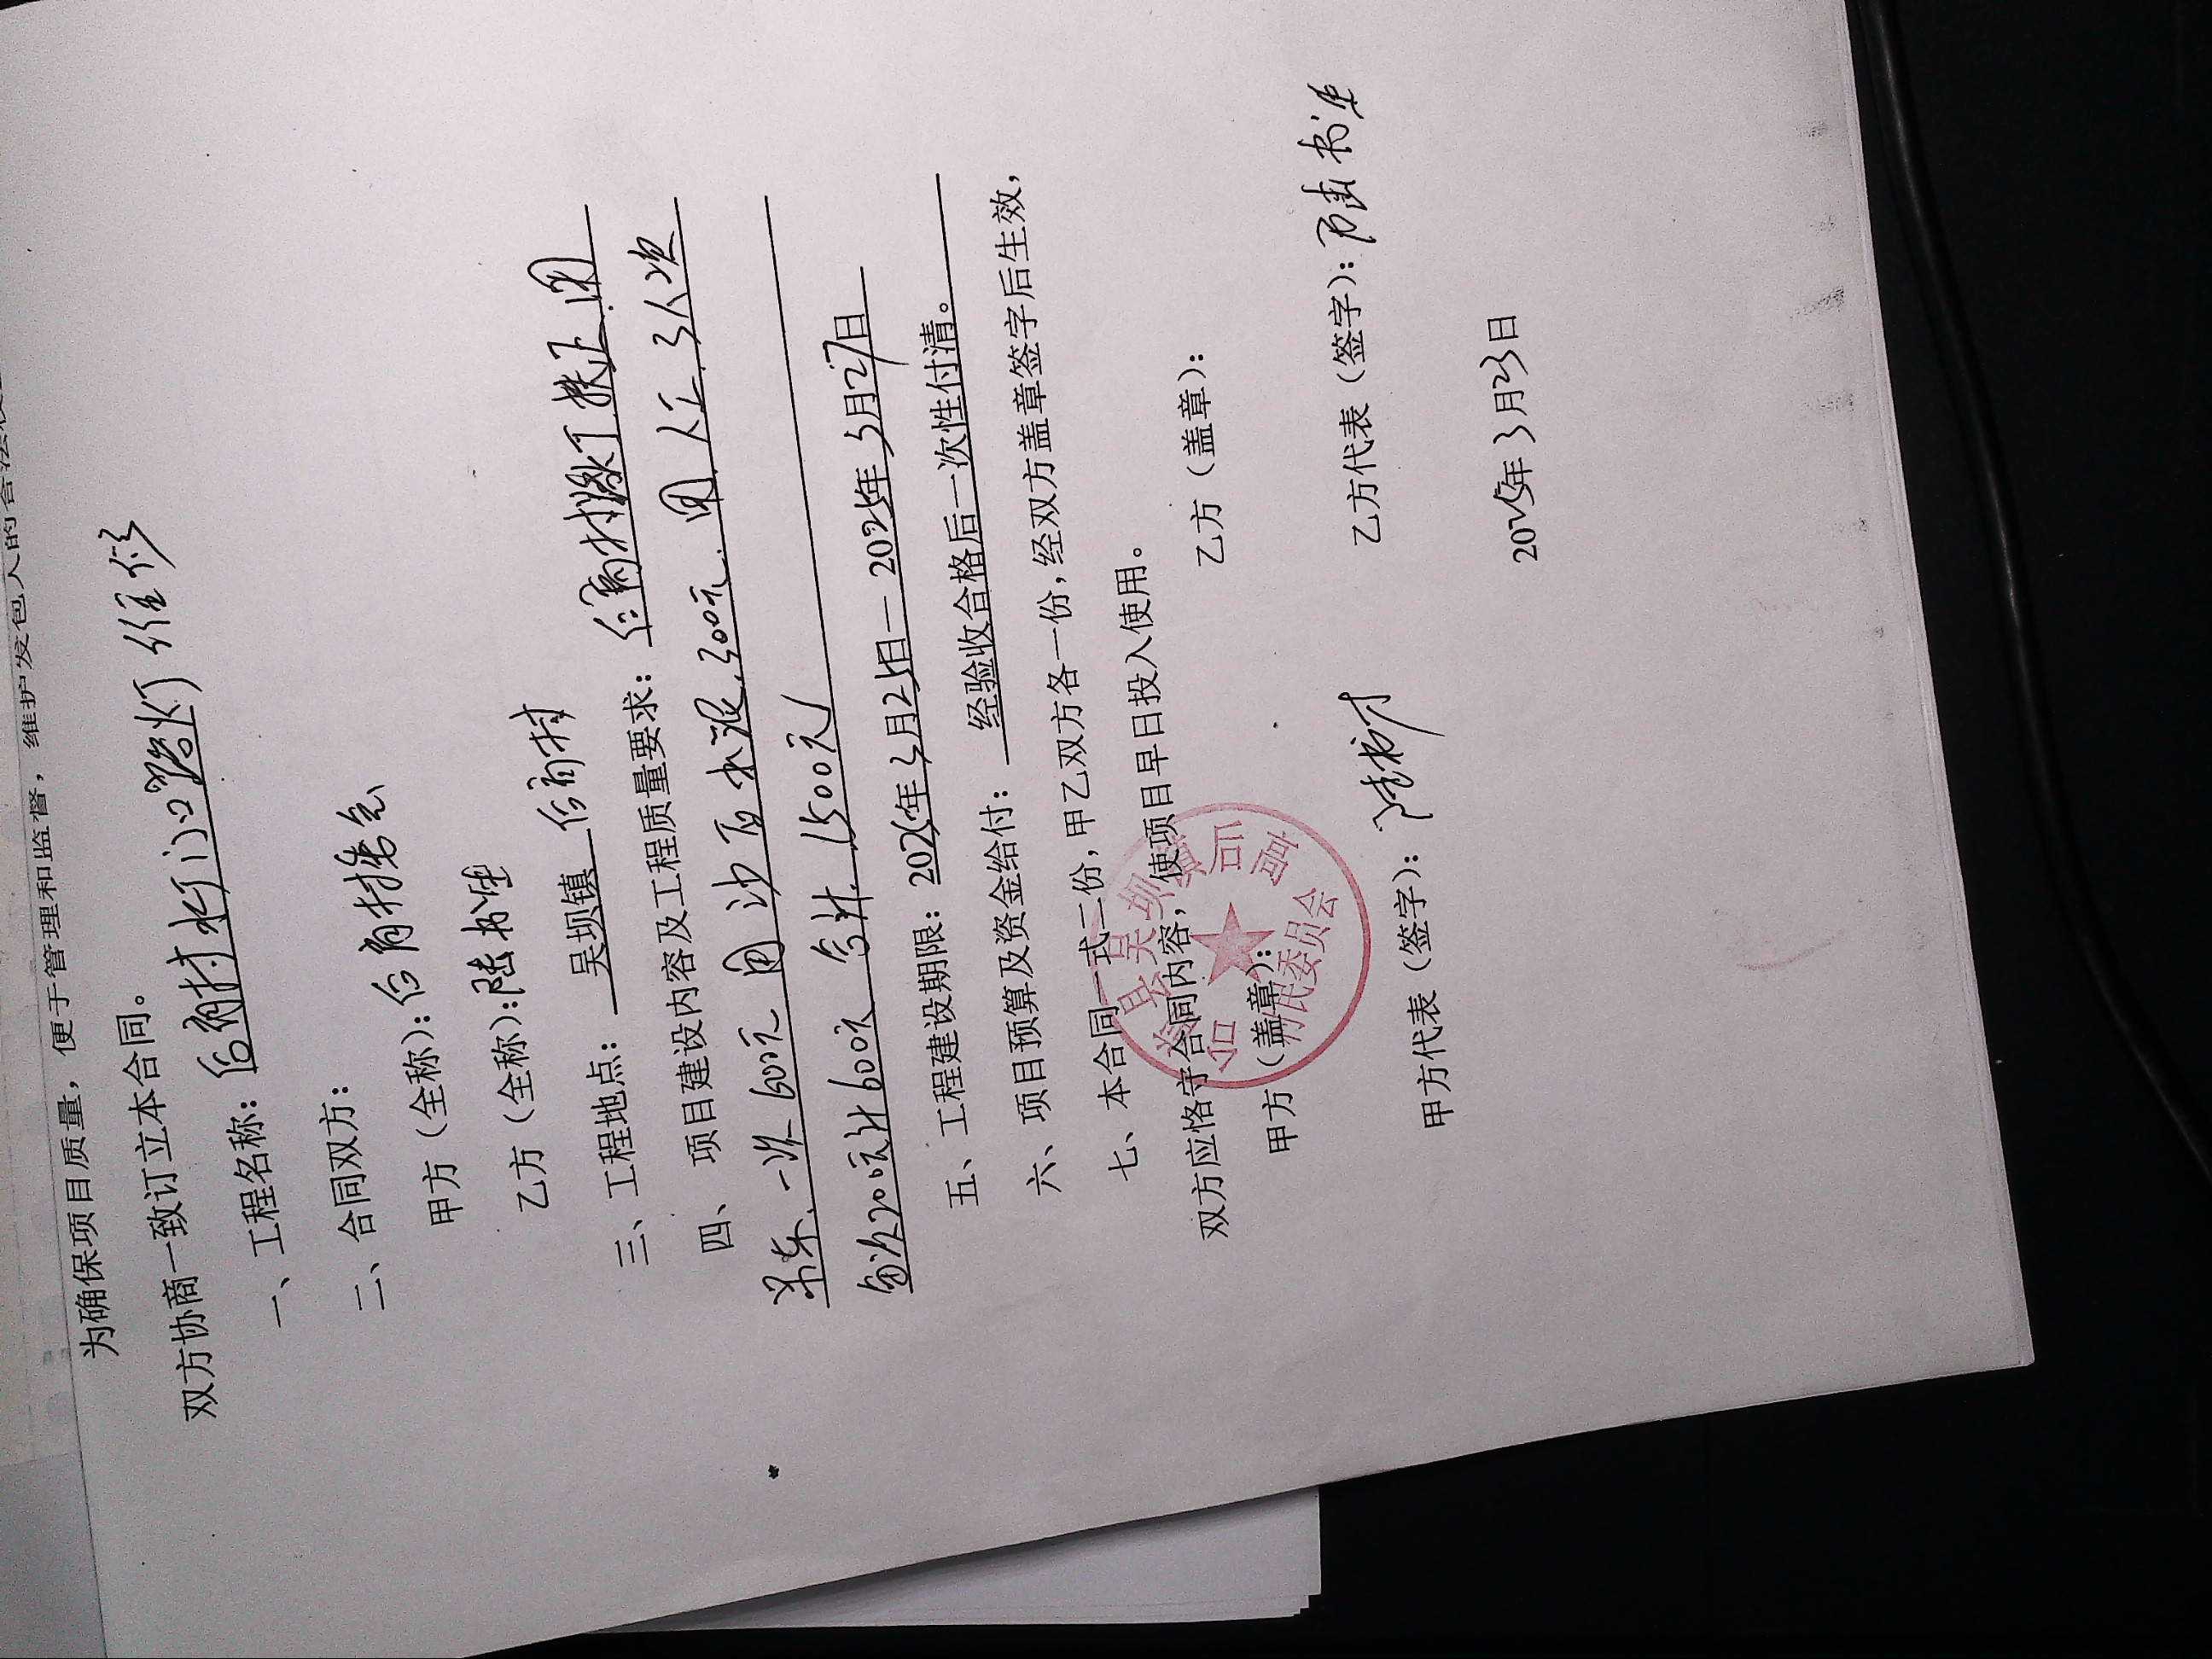 为确保项目质量，便于管理和监督，维护发包人的合法权
双方协商一致订立本合同。
一、工程名称：后商村村门口路灯维修
二、合同双方：
甲方（全称）：后商村村委会
乙方（全称）：陆书生
三、工程地点：吴坝镇后商村
四、项目建设内容及工程质量要求：后商村路灯扶正.用
吊车.一次600元 用沙石水泥.300元.用人工.3人次
每次200元计600元 合计.1500元
五、工程建设期限：2025年3月25日—2025年3月27日
六、项目预算及资金给付：经验收合格后一次性付清。
七、本合同一式二份，甲乙双方各一份，经双方盖章签字后生效，
双方应恪守合同内容，使项目早日投入使用。
甲方（盖章）： 乙方（盖章）：
县吴坝镇后商
村民委员会
甲方代表（签字）： 乙方代表（签字）：陆书生
2025年3月23日